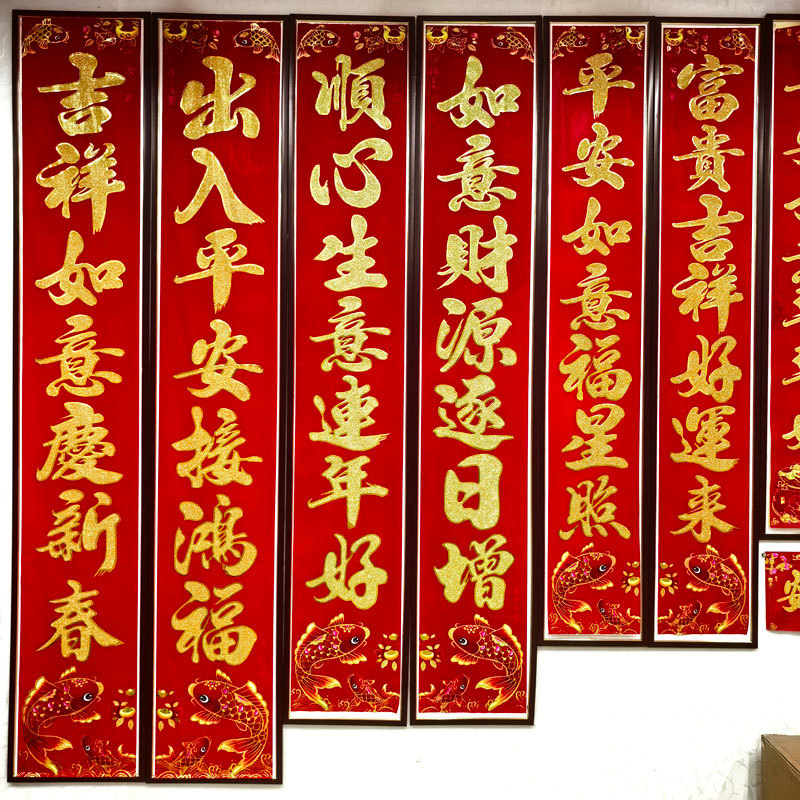 吉祥如意慶新春
出入平安接鴻福
順心生意連年好
如意財源逐日增
平安如意福星照
富貴吉祥好運来